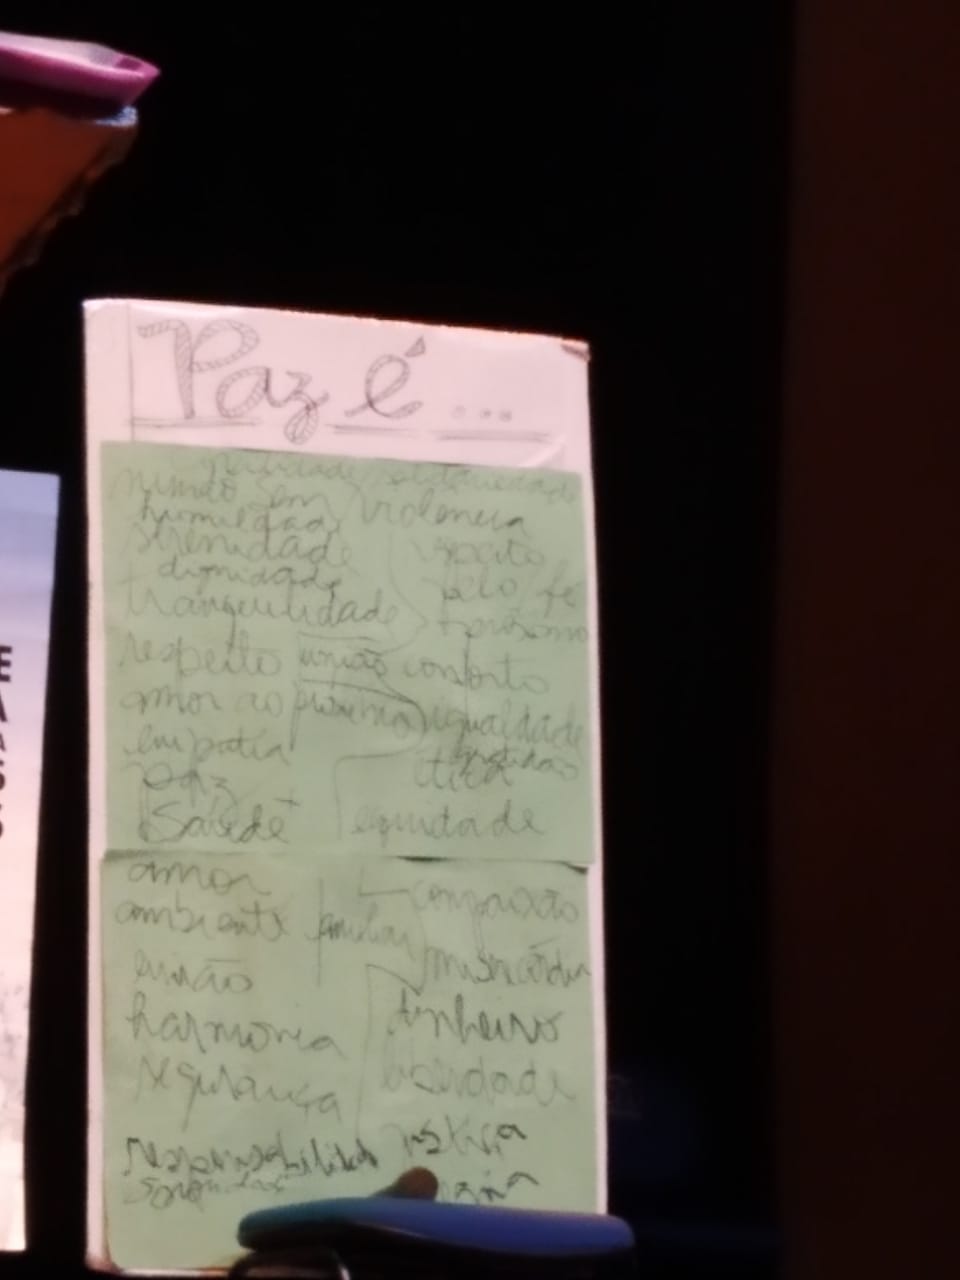 Paz é...
solidariedade
mundo sem violencia
humildade
serenidade respeito
dignidade pelo
tranquilidade próximo
respeito união conforto
amor ao próximo igualdade
empatia gratidão
Paz ética
Saúde equidade
amor compaixão
ambiente familiar
união misericórdia
harmonia dinheiro
segurança liberdade
responsabilidade justiça
E
A
A
S
S